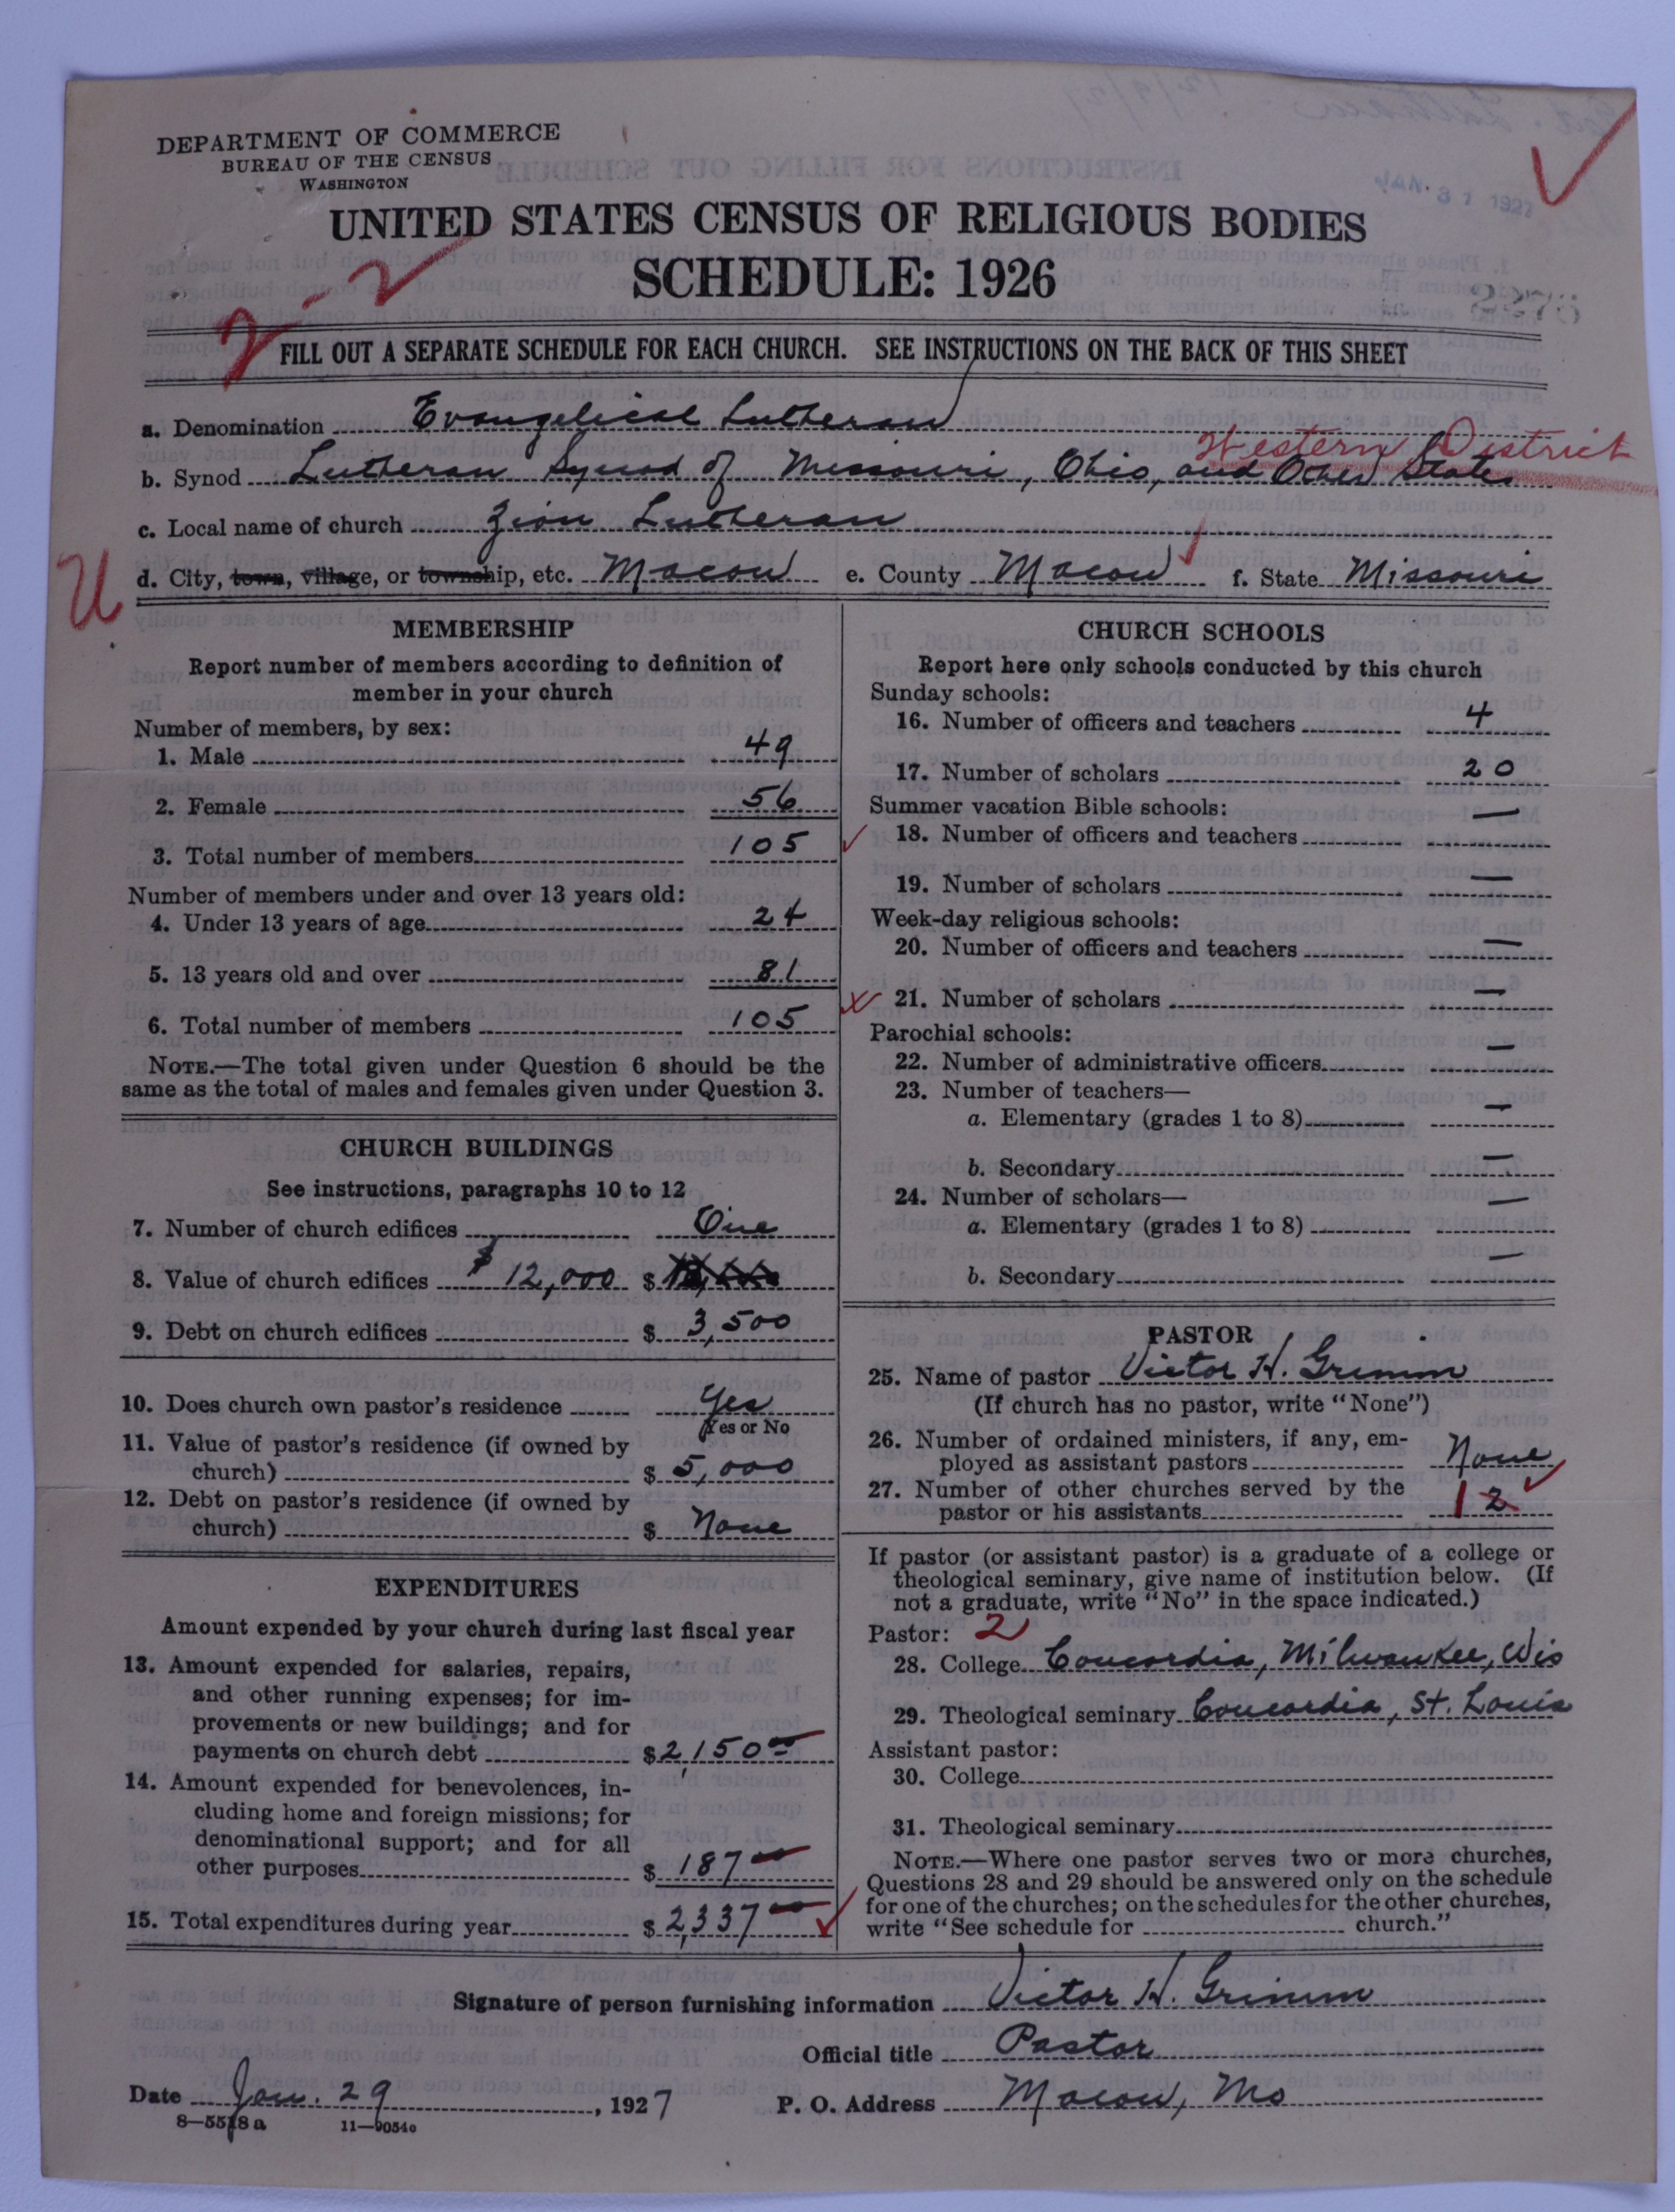 DEPARTMENT OF COMMERCE
BUREAU OF THE CENSUS
WASHINGTON
JAN. 31 1927
UNITED STATES CENSUS OF RELIGIOUS BODIES
SCHEDULE: 1926
2-2
FILL OUT A SEPARATE SCHEDULE FOR EACH CHURCH. SEE INSTRUCTIONS ON THE BACK OF THIS SHEET
a. Denomination Evangelical Lutheran
Western District
b. Synod Lutheran Synod of Missouri, Ohio, and Other States
c. Local name of church Zion Lutheran
U
d. City, town, village, or township, etc. Macon e. County Macon f. State Missouri
MEMBERSHIP
Report number of members according to definition of
member in your church
Number of members, by sex:
1. Male 49
2. Female 56
3. Total number of members 105
Number of members under and over 13 years old:
4. Under 13 years of age 24
5. 13 years old and over 81
6. Total number of members 105
NOTE.—The total given under Question 6 should be the
same as the total of males and females given under Question 3.
CHURCH BUILDINGS
See instructions, paragraphs 10 to 12
7. Number of church edifices One
8. Value of church edifices $ 12,000 $
9. Debt on church edifices $ 3,500
10. Does church own pastor's residence Yes
Yes or No
11. Value of pastor's residence (if owned by
church) $ 5,000
12. Debt on pastor's residence (if owned by
church) $ None
EXPENDITURES
Amount expended by your church during last fiscal year
13. Amount expended for salaries, repairs,
and other running expenses; for im-
provements or new buildings; and for
payments on church debt $ 2,150 00
14. Amount expended for benevolences, in-
cluding home and foreign missions; for
denominational support; and for all
other purposes $ 187 00
15. Total expenditures during year $ 2,337 00
CHURCH SCHOOLS
Report here only schools conducted by this church
Sunday schools:
16. Number of officers and teachers 4
17. Number of scholars 20
Summer vacation Bible schools:
18. Number of officers and teachers —
19. Number of scholars —
Week-day religious schools:
20. Number of officers and teachers —
21. Number of scholars —
Parochial schools:
22. Number of administrative officers —
23. Number of teachers—
a. Elementary (grades 1 to 8) —
b. Secondary —
24. Number of scholars—
a. Elementary (grades 1 to 8) —
b. Secondary —
PASTOR
25. Name of pastor Victor H. Grimm
(If church has no pastor, write "None")
26. Number of ordained ministers, if any, em-
ployed as assistant pastors None
27. Number of other churches served by the
pastor or his assistants 1 2
If pastor (or assistant pastor) is a graduate of a college or
theological seminary, give name of institution below. (If
not a graduate, write "No" in the space indicated.)
Pastor: 2
28. College Concordia, Milwaukee, Wis
29. Theological seminary Concordia, St. Louis
Assistant pastor:
30. College
31. Theological seminary
NOTE.—Where one pastor serves two or more churches,
Questions 28 and 29 should be answered only on the schedule
for one of the churches; on the schedules for the other churches,
write "See schedule for church."
Signature of person furnishing information Victor H. Grimm
Official title Pastor
Date Jan. 29, 1927 P. O. Address Macon, Mo
8—5518a 11—9054o